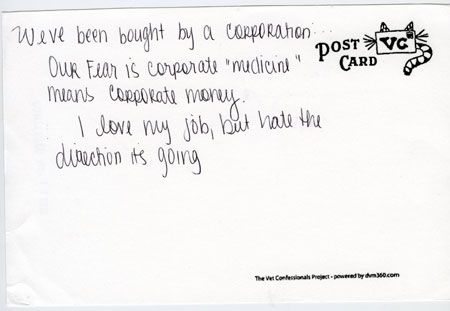 We've been bought by a corporation...
Our Fear is corporate "medicine"
means corporate money.
I love my job, but hate the
direction its going
POST CARD
VC
The Vet Confessionals Project - powered by dvm360.com